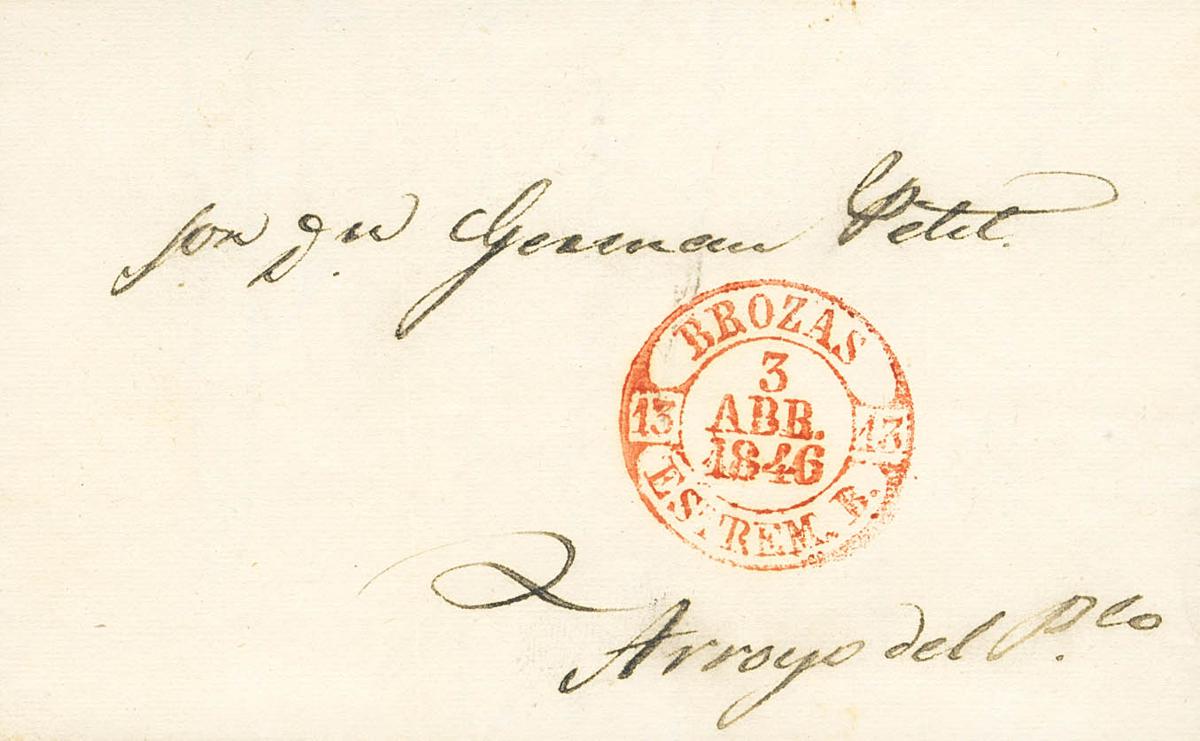 Dn German Petit.
BROZAS
3
ABR.
1846
13 13
ESTREM. B.
Arroyo del P.co